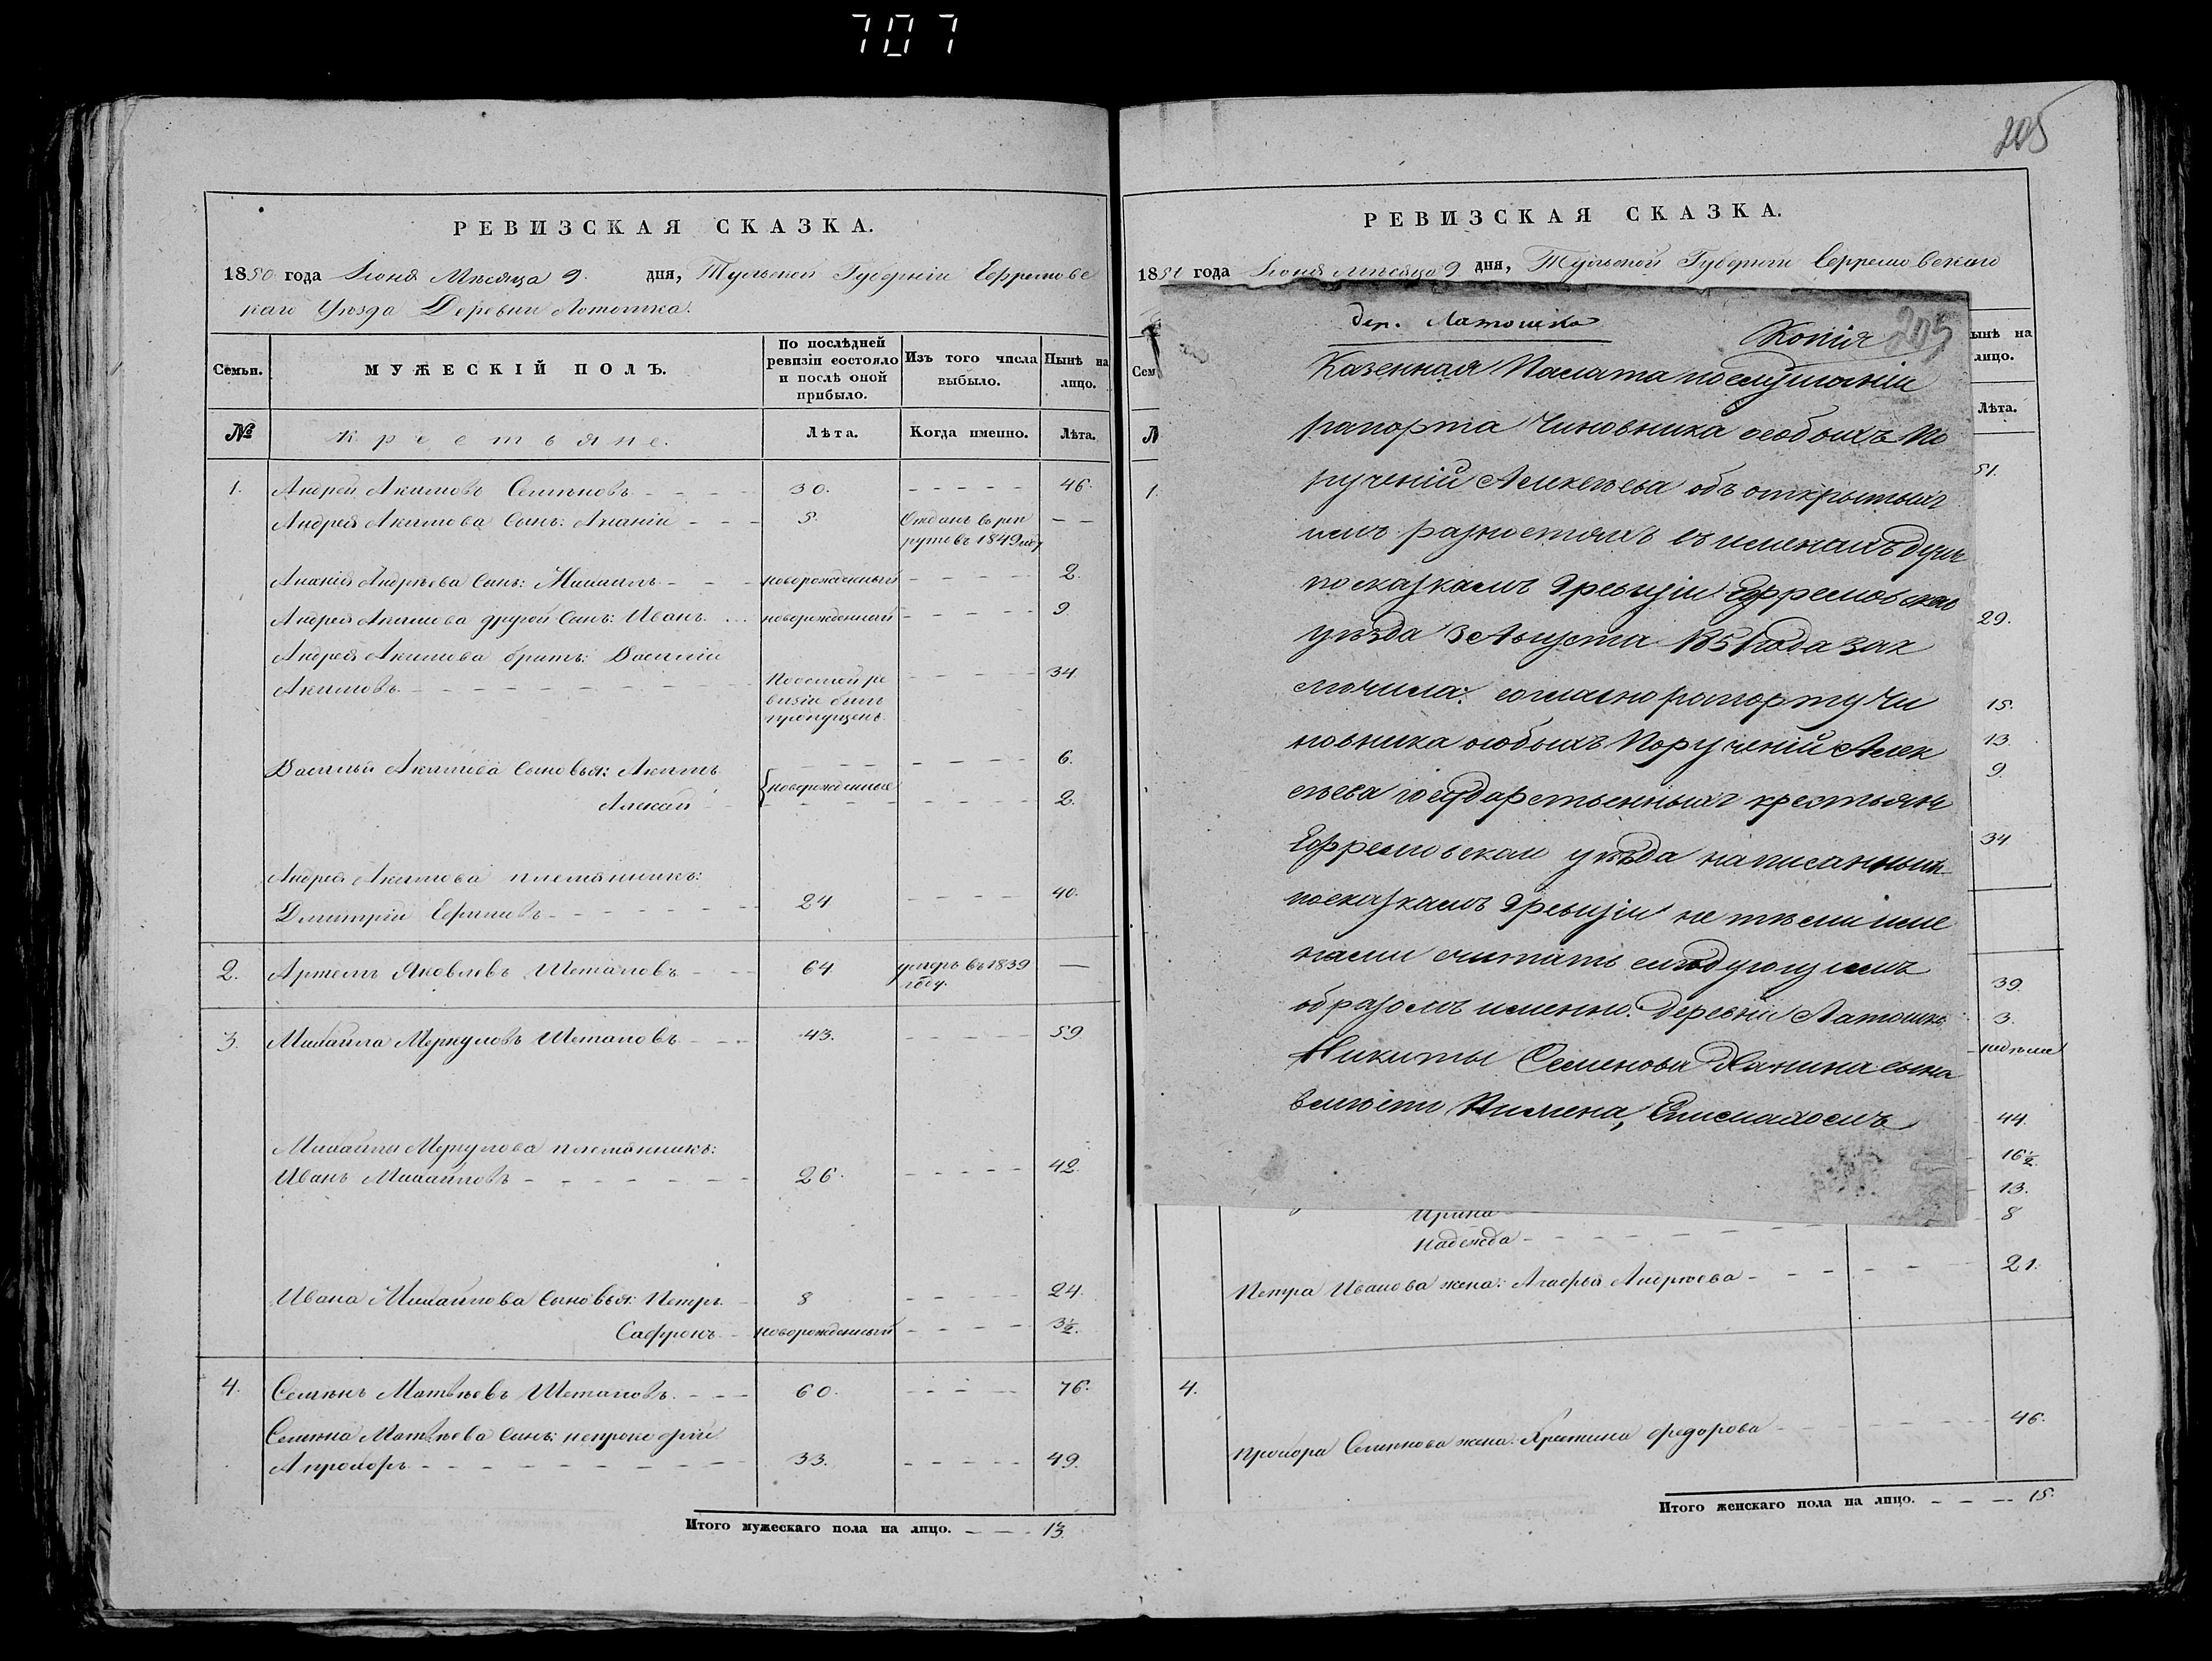 707
РЕВИЗСКАЯ СКАЗКА.
1850 года Іюня Мѣсяца 9. дня, Тульской Губерніи Ефремовс
каго Уѣзда Деревни Лотошка.
Семьи.
МУЖЕСКІЙ ПОЛЪ.
По послѣдней
ревизіи состояло
и послѣ оной
прибыло.
Изъ того числа
выбыло.
Нынѣ на
лицо.
№
Крестьяне.
Лѣта.
Когда именно.
Лѣта.
1. Андрей Акимовъ 30. 46.
Андрея Акимова Сынъ: Ананій 5. Отданъ въ рек
руты въ 1849 году
Ананія Андрѣева Сынъ: Михаилъ новорожденный 2.
Андрея Акимова другой Сынъ: Иванъ новорожденный 9
Андрея Акимова братъ: Василій
Акимовъ По ре 34
визіи былъ
пропущенъ.
Василья Акимова Сыновья: Акимъ 6.
новорожденные
Алексѣй 2.
Андрея Акимова племянникъ:
Дмитрій 24 40.
2. Артемъ Яковлевъ Шеталовъ 64 умеръ въ 1839 —
году.
3. Михайла Меркуловъ Шеталовъ 43. 59
Михайлы Меркулова племянникъ:
Иванъ Михайловъ 26. 42.
Ивана Михайлова Сыновья: Петръ 8 24.
Сафронъ новорожденный 3½.
4. Семенъ Матвѣевъ Шеталовъ. 60. 76.
Семена Матвѣева Сынъ:
Прохоръ 33. 49.
Итого мужескаго пола на лицо. 13.
205
РЕВИЗСКАЯ СКАЗКА.
1850 года Іюня мѣсяца 9 дня, Тульской Губерніи Ефремовскаго
дер. Латошка
Копія 205
Казенная Палата по слушаніи
рапорта Чиновника особыхъ По
рученій Алексѣева объ открытыхъ
имъ разностяхъ въ именахъ душъ
по сказкамъ 9 ревизіи Ефремовскаго
уѣзда 3 Августа 1851 года зак
лючила: согласно рапорту Чи
новника особыхъ Порученій Алек
сѣева государственныхъ крестьянъ
Ефремовскаго уѣзда написанныхъ
по сказкамъ 9 ревизіи не тѣми име
нами считать слѣдующимъ
образомъ именно: Деревни Латошки
Никиты Семенова сына
вмѣсто Пимена,
Сем
ынѣ на
лицо.
Лѣта.
1.
51.
29.
15.
13.
9.
34
39.
3.
44.
16½.
13.
8
Ирина
Надежда
21.
Петра Иванова жена: Агафья Андрѣева
4.
46.
Прохора Семенова жена: Федорова
Итого женскаго пола на лицо. 15.